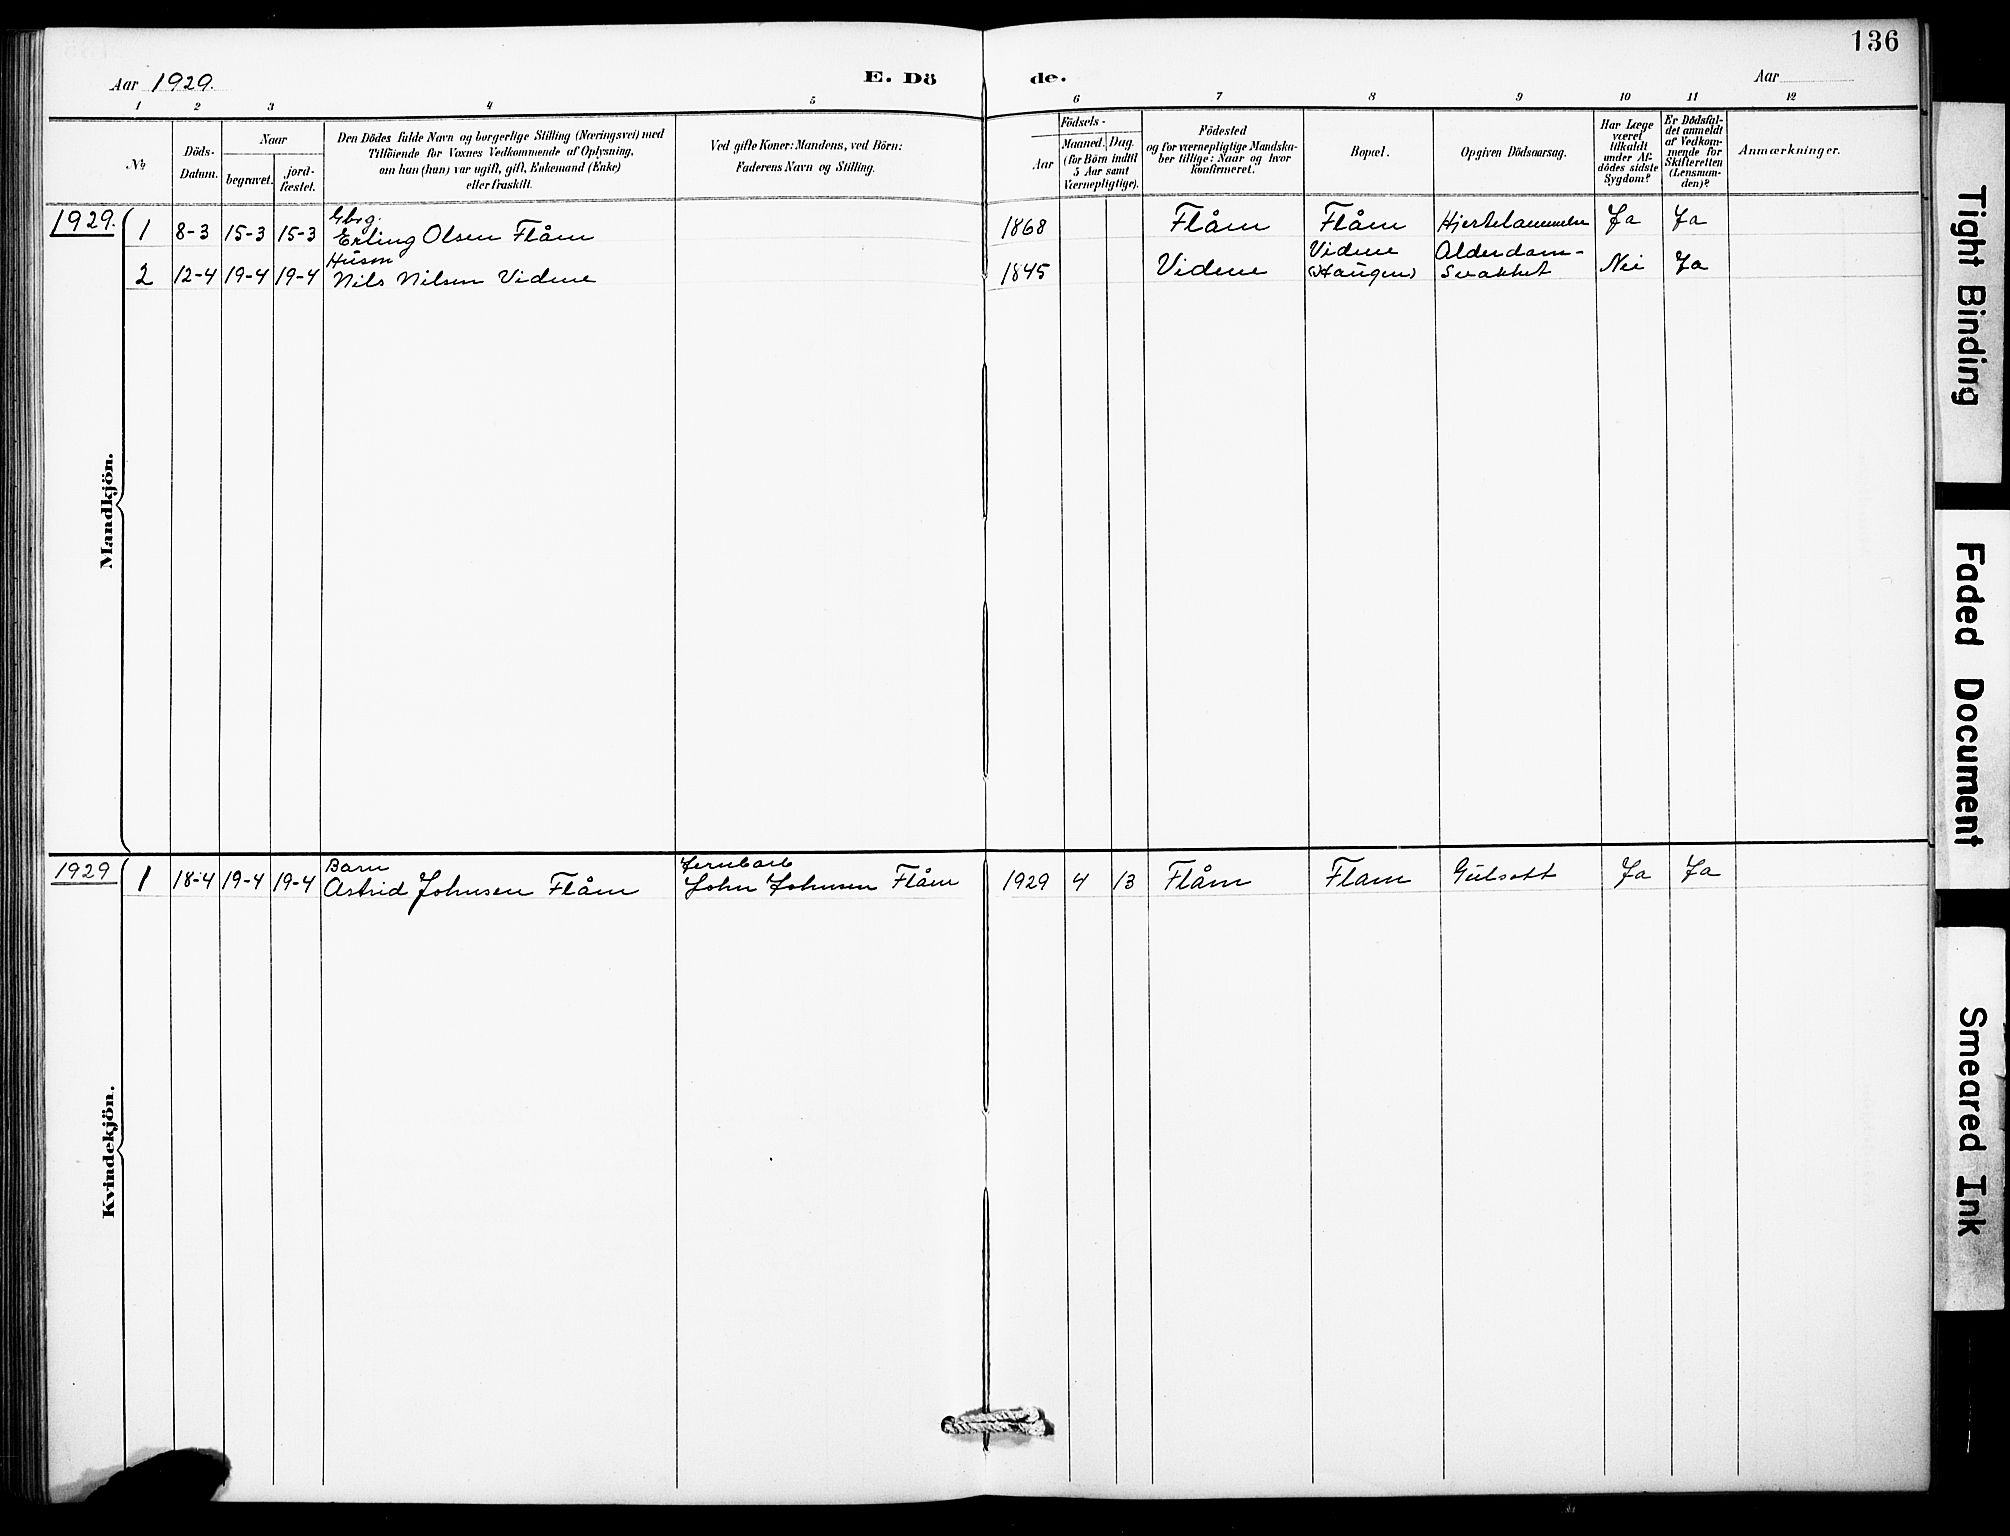 136
Aar 1929.
E. Dö
de.
Aar
1 2 3 4 5 6 7 8 9 10 11 12
No.
Döds-
Datum.
Naar
begravet.
jord-
fæstet.
Den Dödes fulde Navn og borgerlige Stilling (Næringsvei) med
Tilföiende for Voxnes Vedkommende af Oplysning,
om han (hun) var ugift, gift, Enkemand (Enke)
eller fraskilt.
Ved gifte Koner: Mandens, ved Börn:
Faderens Navn og Stilling.
Födsels-
Aar
Maaned. Dag.
(for Börn indtil
5 Aar samt
Værnepligtige).
Födested
og for værnepligtige Mandska-
ber tillige: Naar og hvor
konfirmeret.
Bopæl.
Opgiven Dödsaarsag.
Har Læge
været
tilkaldt
under Af-
dödes sidste
Sygdom?
Er Dödsfal-
det anmeldt
af Vedkom-
mende for
Skifteretten
(Lensman-
den)?
Anmærkninger.
1929.
Mandkjön.
Gbrg.
1 8-3 15-3 15-3 Erling Olsen Flåm 1868 Flåm Flåm Hjertelammelse Ja Ja
Husm Vidme Alderdom-
2 12-4 19-4 19-4 Nils Nilsen Vidme 1845 Vidme (Haugen) Svakhet Nei Ja
1929
Kvindekjön.
Barn
1 18-4 19-4 19-4 Astrid Johnsen Flåm John Johnsen Flåm 1929 4 13 Flåm Flam Gulsott Ja Ja
Tight Binding
Faded Document
Smeared Ink